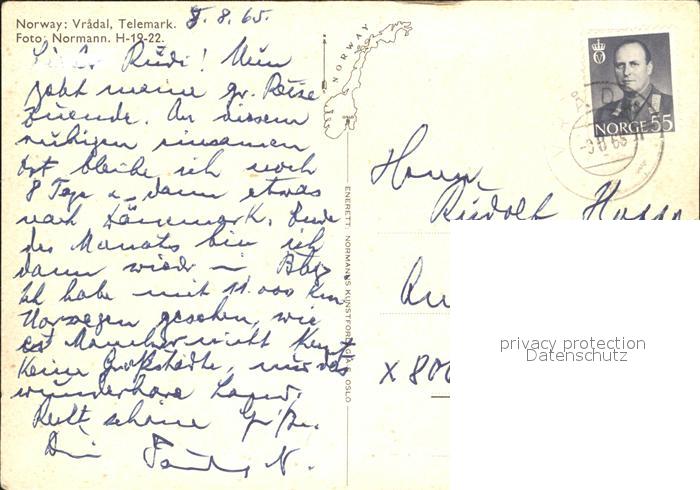 Norway: Vrådal, Telemark.
Foto: Normann. H-19-22.
8.65.
Rudi! Nun
geht meine gr. Reise
zuende. An diesem
ruhigen einsamen
Ort bleibe ich noch
8 Tage dann etwas
nach Dänemark. Ende
des Monats bin ich
dann wieder in
Ich habe mit 11.000 km
Norwegen gesehen, wie
es Mancher nicht kennt
Keine Großstädte, nur das
wunderbare Land.
schöne
N.
NORWAY
ENERETT: NORMANNS KUNSTFORLAG A/S, OSLO
NORGE 55
Herrn
Rudolf
X 80
privacy protection
Datenschutz